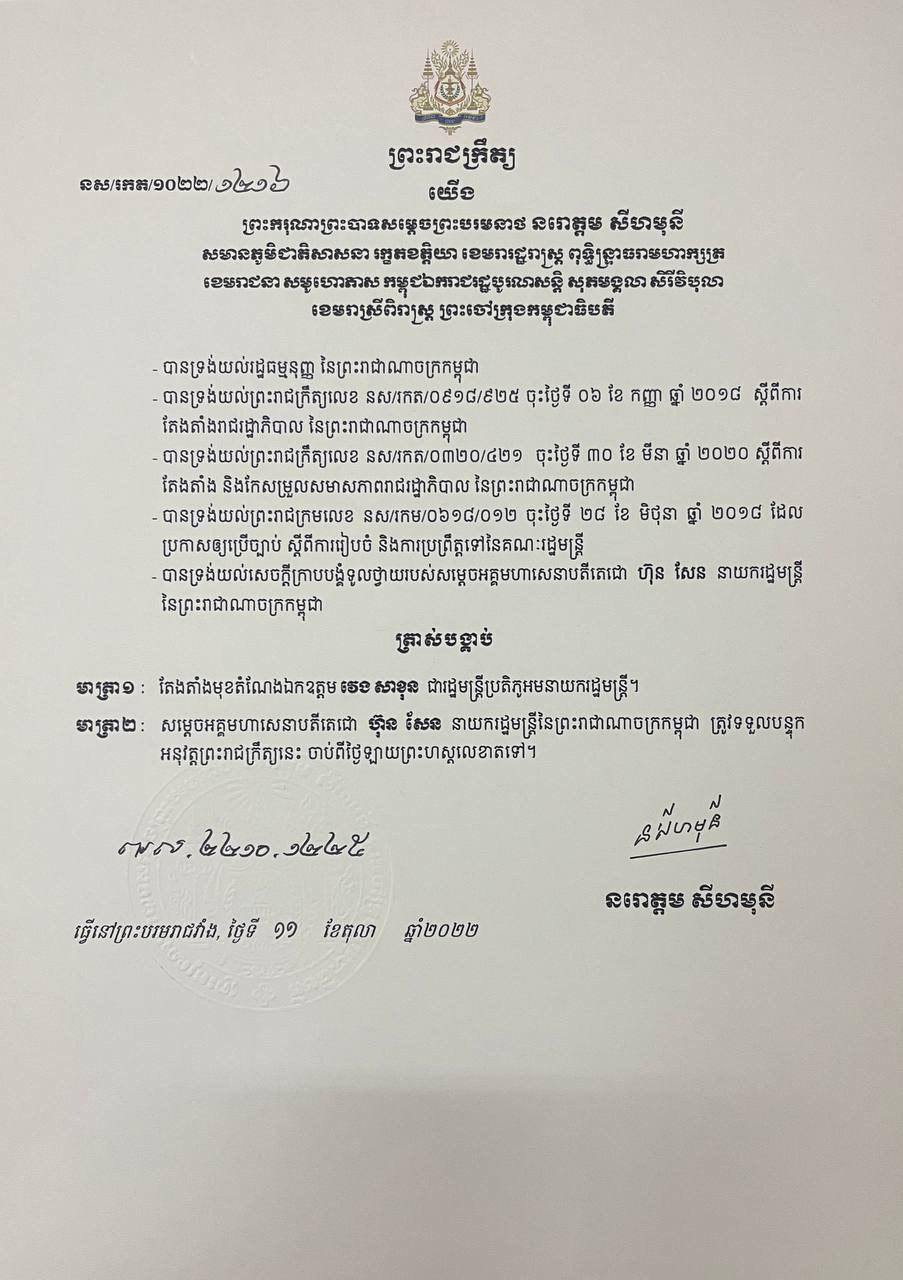 ព្រះរាជក្រឹត្យ
នស/រកត/១០២២/១៤១៦
យើង
ព្រះករុណាព្រះបាទសម្តេចព្រះបរមនាថ នរោត្តម សីហមុនី
សមានភូមិជាតិសាសនា រក្ខតខត្តិយា ខេមរារដ្ឋរាស្ត្រ ពុទ្ធិន្ទ្រាធរាមហាក្សត្រ
ខេមរាជនា សមូហោភាស កម្ពុជឯករាជរដ្ឋបូរណសន្តិ សុភមង្គលា សិរីវិបុលា
ខេមរាស្រីពិរាស្ត្រ ព្រះចៅក្រុងកម្ពុជាធិបតី
- បានទ្រង់យល់រដ្ឋធម្មនុញ្ញ នៃព្រះរាជាណាចក្រកម្ពុជា
- បានទ្រង់យល់ព្រះរាជក្រឹត្យលេខ នស/រកត/០៩១៨/៩២៥ ចុះថ្ងៃទី ០៦ ខែ កញ្ញា ឆ្នាំ ២០១៨ ស្តីពីការ
តែងតាំងរាជរដ្ឋាភិបាល នៃព្រះរាជាណាចក្រកម្ពុជា
- បានទ្រង់យល់ព្រះរាជក្រឹត្យលេខ នស/រកត/០៣២០/៤២១ ចុះថ្ងៃទី ៣០ ខែ មីនា ឆ្នាំ ២០២០ ស្តីពីការ
តែងតាំង និងកែសម្រួលសមាសភាពរាជរដ្ឋាភិបាល នៃព្រះរាជាណាចក្រកម្ពុជា
- បានទ្រង់យល់ព្រះរាជក្រមលេខ នស/រកម/០៦១៨/០១២ ចុះថ្ងៃទី ២៨ ខែ មិថុនា ឆ្នាំ ២០១៨ ដែល
ប្រកាសឲ្យប្រើច្បាប់ ស្តីពីការរៀបចំ និងការប្រព្រឹត្តទៅនៃគណៈរដ្ឋមន្ត្រី
- បានទ្រង់យល់សេចក្តីក្រាបបង្គំទូលថ្វាយរបស់សម្តេចអគ្គមហាសេនាបតីតេជោ ហ៊ុន សែន នាយករដ្ឋមន្ត្រី
នៃព្រះរាជាណាចក្រកម្ពុជា
ត្រាស់បង្គាប់
មាត្រា១ : តែងតាំងមុខតំណែងឯកឧត្តម វេង សាខុន ជារដ្ឋមន្ត្រីប្រតិភូអមនាយករដ្ឋមន្ត្រី។
មាត្រា២ : សម្តេចអគ្គមហាសេនាបតីតេជោ ហ៊ុន សែន នាយករដ្ឋមន្ត្រីនៃព្រះរាជាណាចក្រកម្ពុជា ត្រូវទទួលបន្ទុក
អនុវត្តព្រះរាជក្រឹត្យនេះ ចាប់ពីថ្ងៃឡាយព្រះហស្តលេខាតទៅ។
ព.ស. ២២១០.១៤៤៥
ន សីហមុនី
នរោត្តម សីហមុនី
ធ្វើនៅព្រះបរមរាជវាំង, ថ្ងៃទី ១១ ខែតុលា ឆ្នាំ២០២២